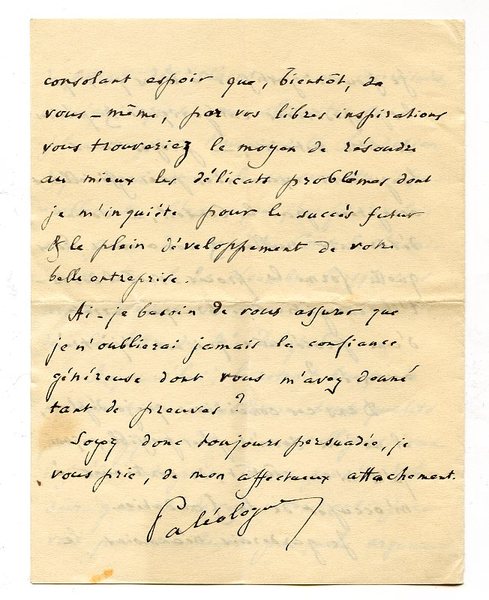 consolant espoir que, bientôt, de
vous-même, par vos libres inspirations
vous trouveriez le moyen de résoudre
au mieux les délicats problèmes dont
je m'inquiète pour le succès futur
& le plein développement de votre
belle entreprise.
Ai-je besoin de vous assurer que
je n'oublierai jamais la confiance
généreuse dont vous m'avez donné
tant de preuves ?
Soyez donc toujours persuadée, je
vous prie, de mon affectueux attachement.
Paléologue